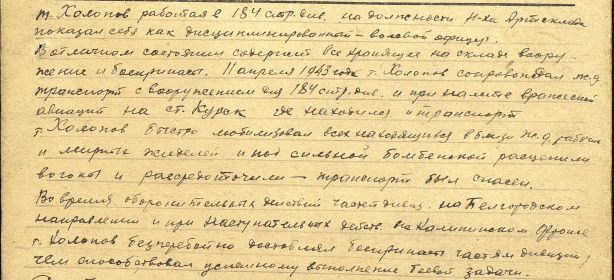 т. Холопов работая в 184 стр. див. на должности Н-ка Артсклада
показал себя как дисциплинированный – волевой офицер.
В отличном состоянии содержит все хранящие на складе воору-
жение и боеприпасы. 11 апреля 1943 года т. Холопов сопровождал ж.д.
транспорт с вооружением для 184 стр. див. и при налете вражеской
авиации на ст. Курск где находился и транспорт
т. Холопов быстро мобилизовал всех находящихся в близи ж.д. рабочих
и мирных жителей и под сильной бомбежкой расцепили
вагоны и рассредоточили – транспорт был спасен.
Во время оборонительных действий частей дивиз. на Белгородском
направлении и при наступательных действ. на Калининском фронте
т. Холопов безперебойно доставлял боеприпасы частям дивизии,
чем способствовал успешному выполнение боевой задачи.